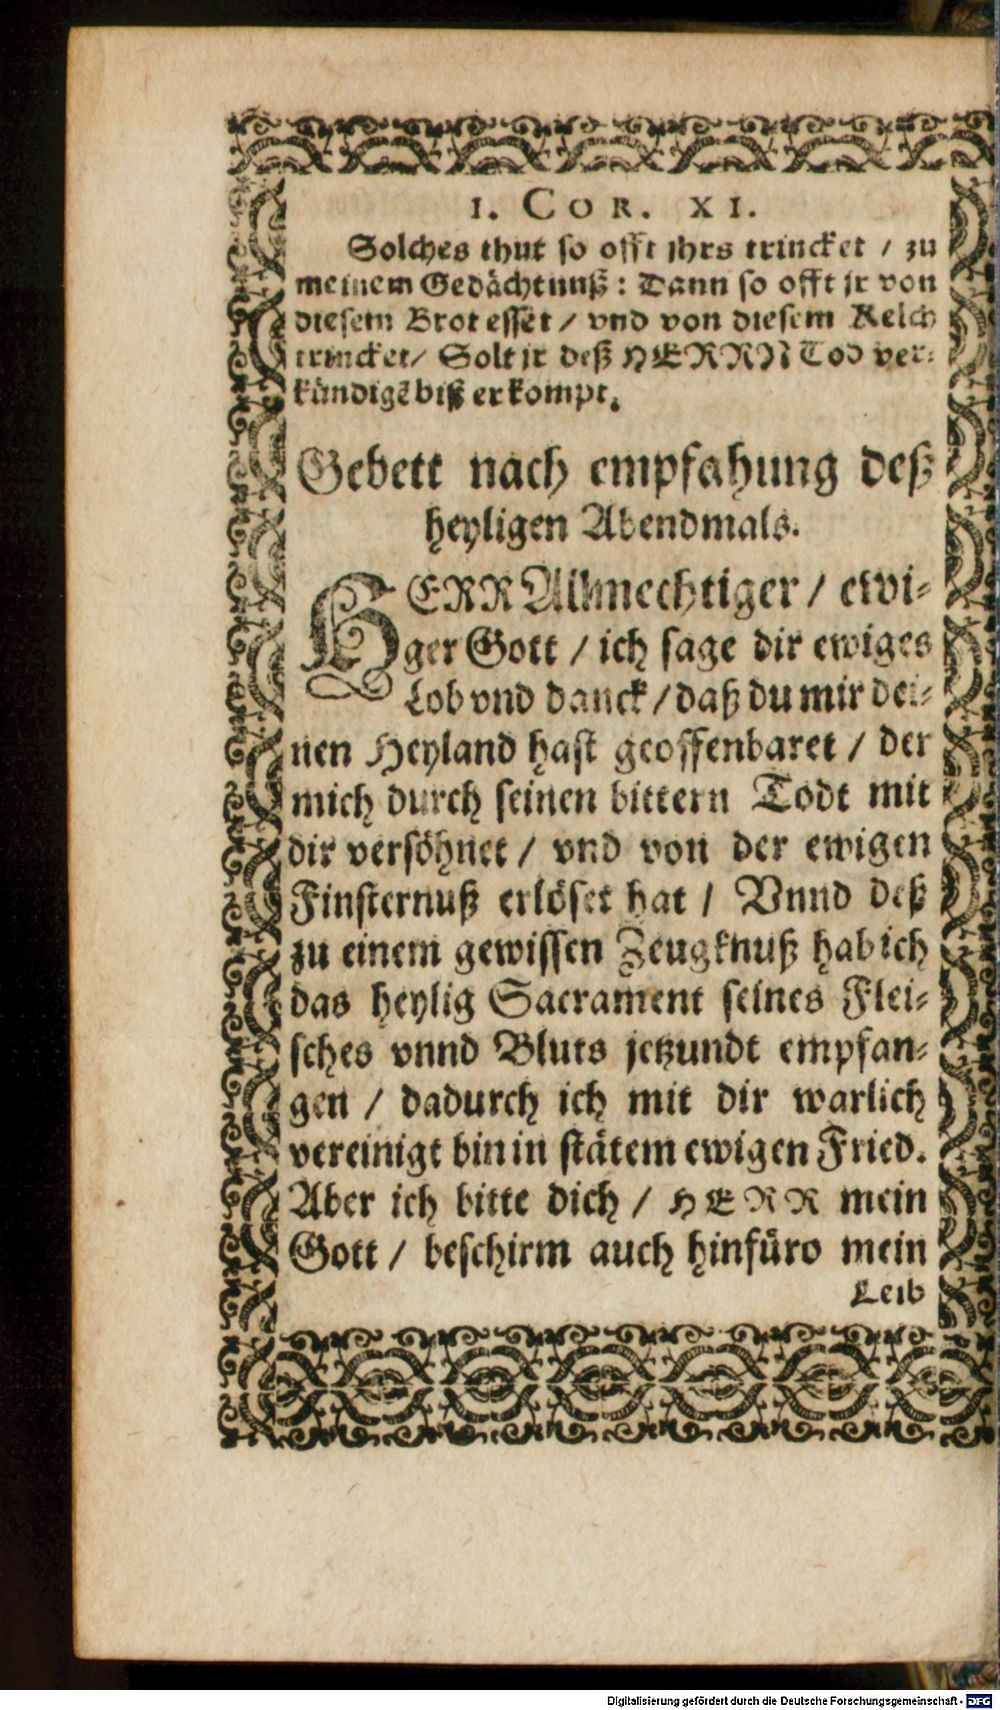 I. COR. XI.
Solches thut so offt jhrs trincket / zu
meinem Gedächtnuß : Dann so offt jr von
diesem Brot esset / vnd von diesem Kelch
trincket / Solt jr deß HERRN Tod ver⸗
kündigẽ biß er kompt.
Gebett nach empfahung deß
heyligen Abendmals.
HERR Allmechtiger / ewi⸗
ger Gott / ich sage dir ewiges
Lob vnd danck / daß du mir dei⸗
nen Heyland hast geoffenbaret / der
mich durch seinen bittern Todt mit
dir versöhnet / vnd von der ewigen
Finsternuß erlöset hat / Vnnd deß
zu einem gewissen Zeugknuß hab ich
das heylig Sacrament seines Flei⸗
sches vnnd Bluts jetzundt empfan⸗
gen / dadurch ich mit dir warlich
vereinigt bin in stätem ewigen Fried.
Aber ich bitte dich / HERR mein
Gott / beschirm auch hinfüro mein
Leib
Digitalisierung gefördert durch die Deutsche Forschungsgemeinschaft - DFG